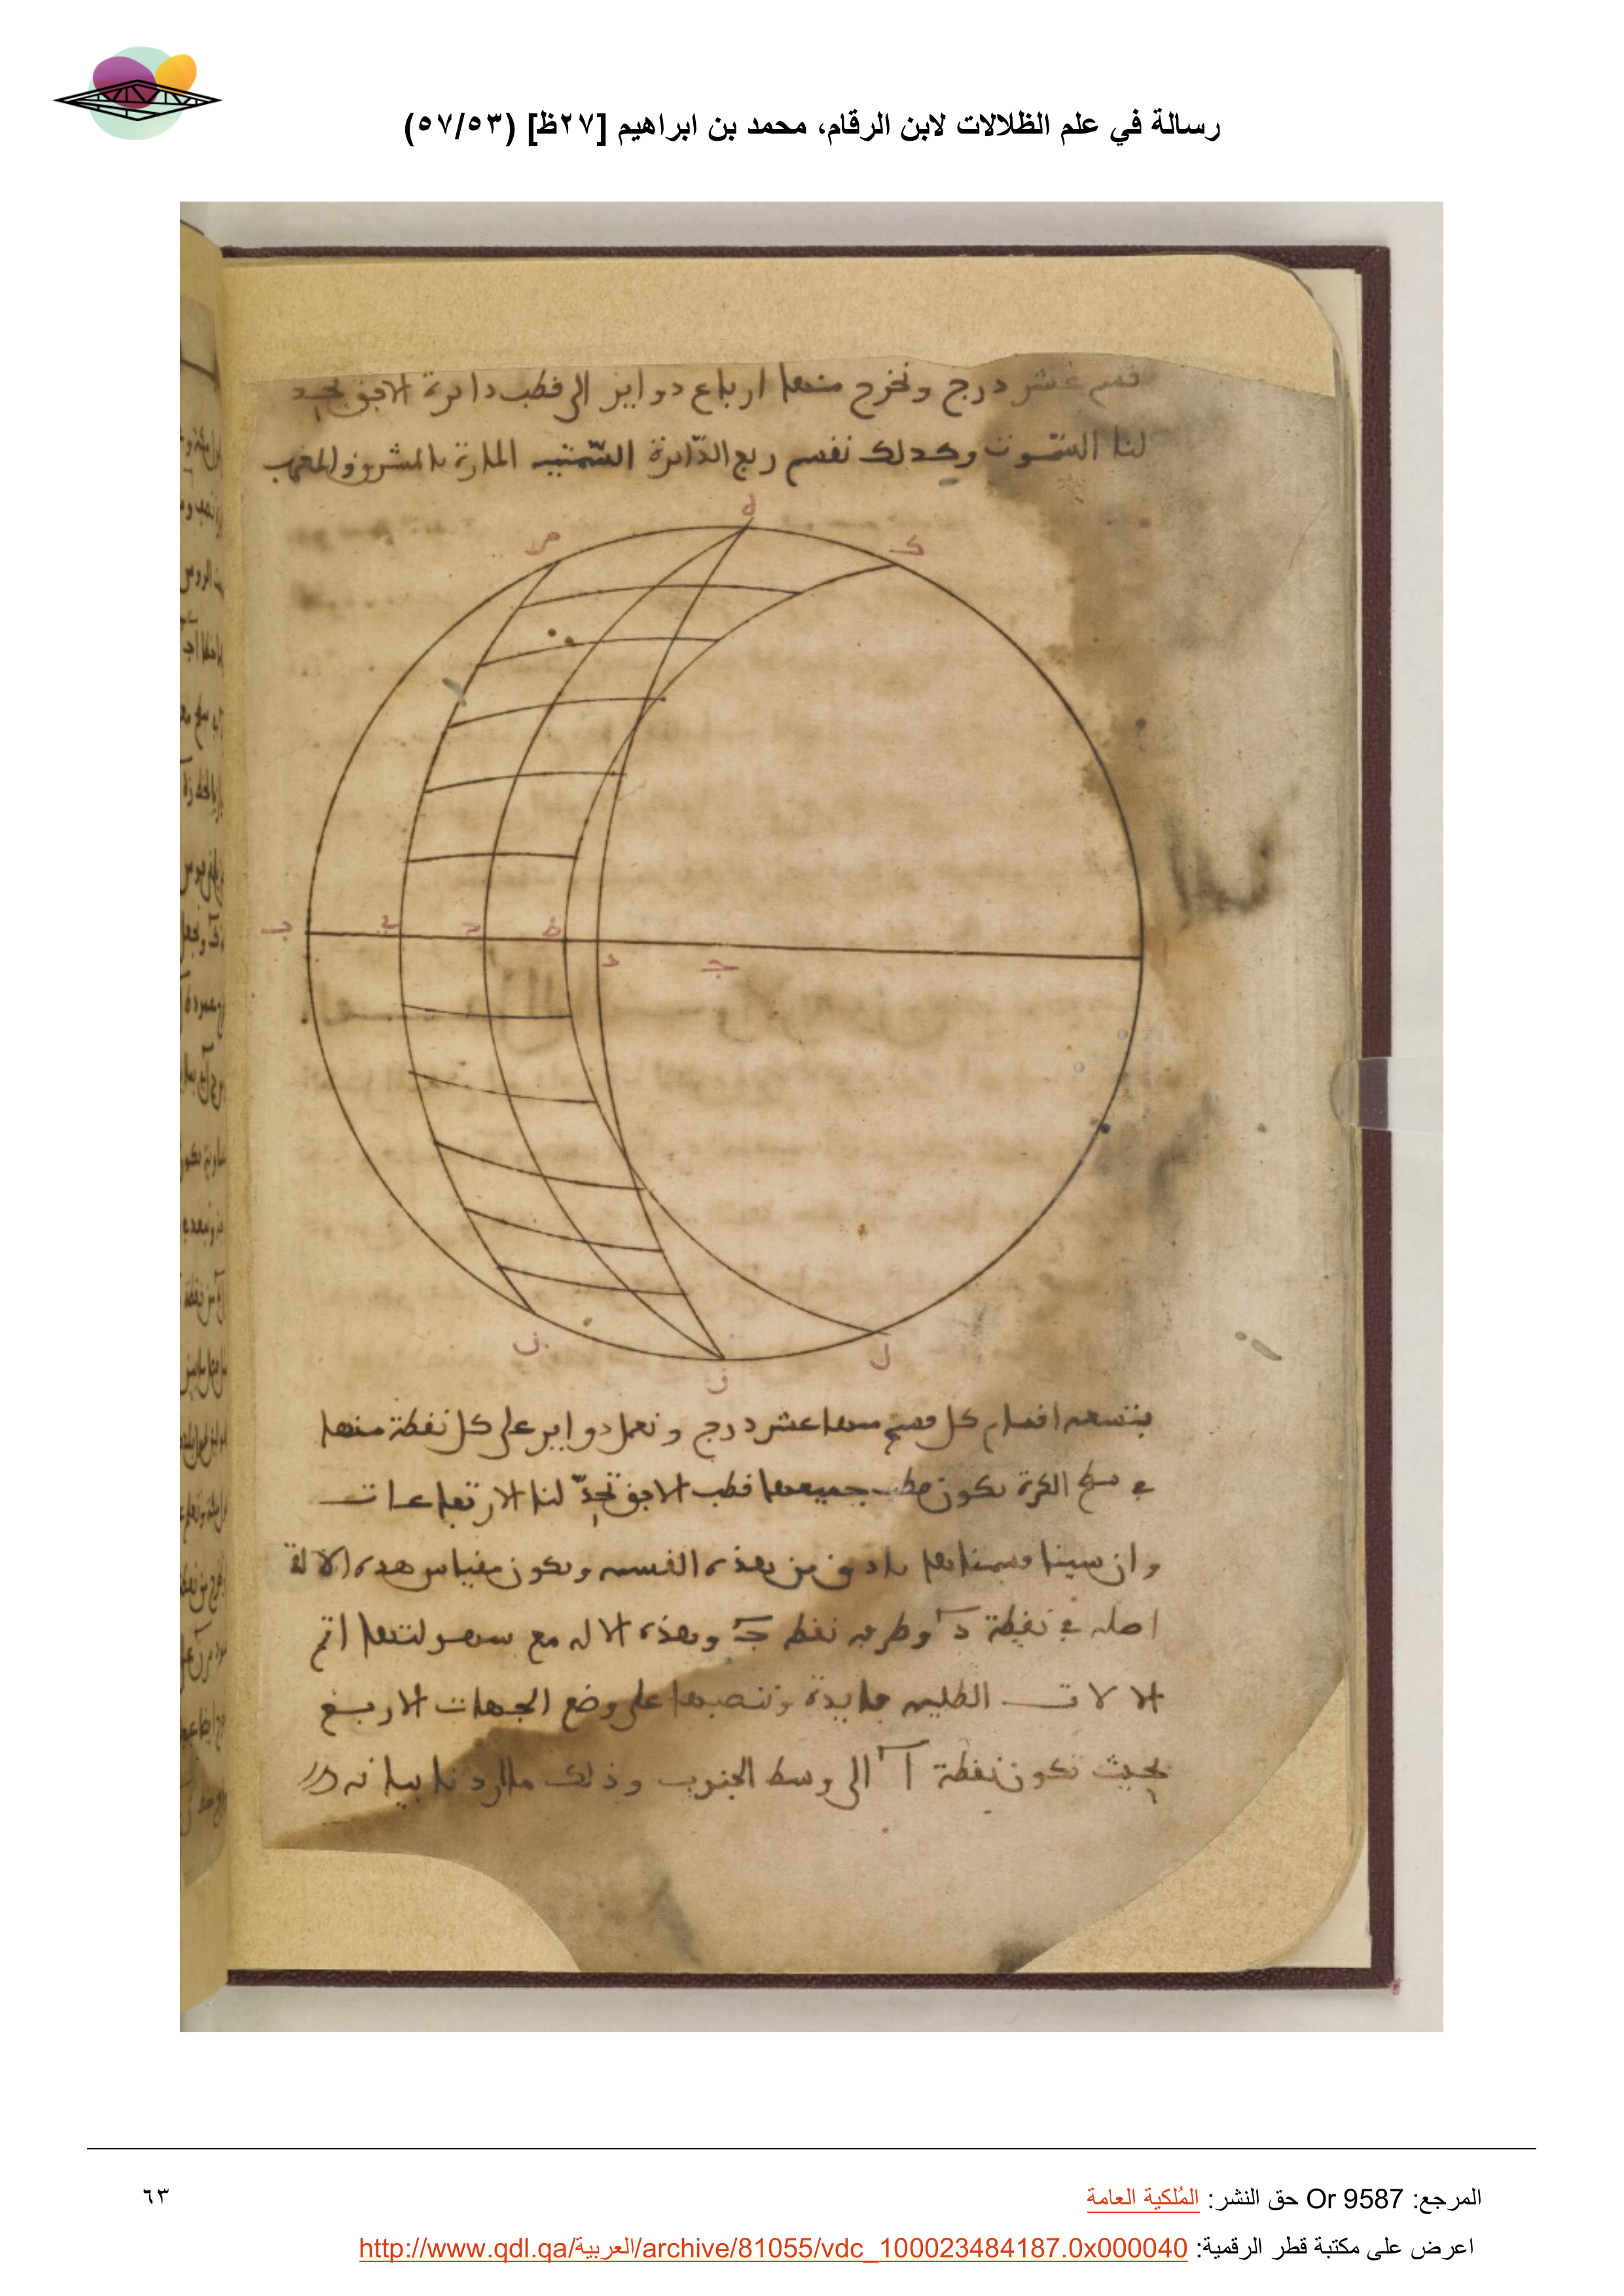 رسالة في علم الظلالات لابن الرقام، محمد بن ابراهيم [٢٧ظ] (٥٧/٥٣)
قسم عشر درج ونخرج منها ارباع دواير الى قطب دايرة الافق تحد
لنا السموت وكذلك نقسم ربع الدايرة السمتيه المارة بالمشرق والمغرب
ط
ص
ك
ب
ع
ح
ه
د
ج
ل
ن
ف
بتسعه اقسام كل قسم منها عشر درج ونعمل دواير على كل نقطة منها
في سطح الكرة تكون قطب جميعها قطب الافق تحد لنا الارتفاعات
وان سينا قسمناها بادق من هذه القسمه ويكون مقياس هذه الالة
اصله في نقطة د وطرفه نقطه ج وهذه الاله مع سهولتها اتم
الالات الظليه فايدة وننصبها على وضع الجهات الاربع
بحيث تكون نقطة ا الى وسط الجنوب وذلك ما اردنا بيانه
المرجع: Or 9587 حق النشر: المُلكية العامة
٦٣
اعرض على مكتبة قطر الرقمية: http://www.qdl.qa/العربية/archive/81055/vdc_100023484187.0x000040